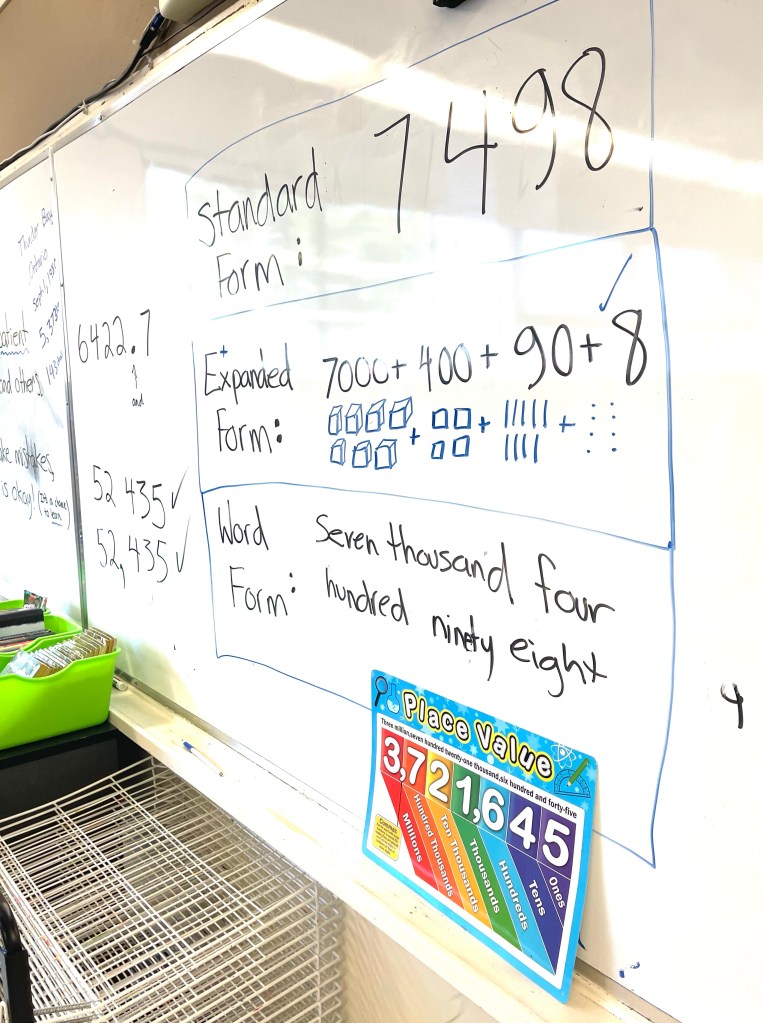 Standard
Form:
7498
Expanded
Form:
7000+ 400 + 90 + 8
+ + +
Word
Form:
Seven thousand four
hundred ninety eight
6422.7
and
52 435 ✓
52,435 ✓
Thunder Bay
Ontario
and others
is okay!
to learn
4
Place Value
Three million,seven hundred twenty-one thousand,six hundred and forty-five
3,721,645
Millions
Hundred Thousands
Ten Thousands
Thousands
Hundreds
Tens
Ones